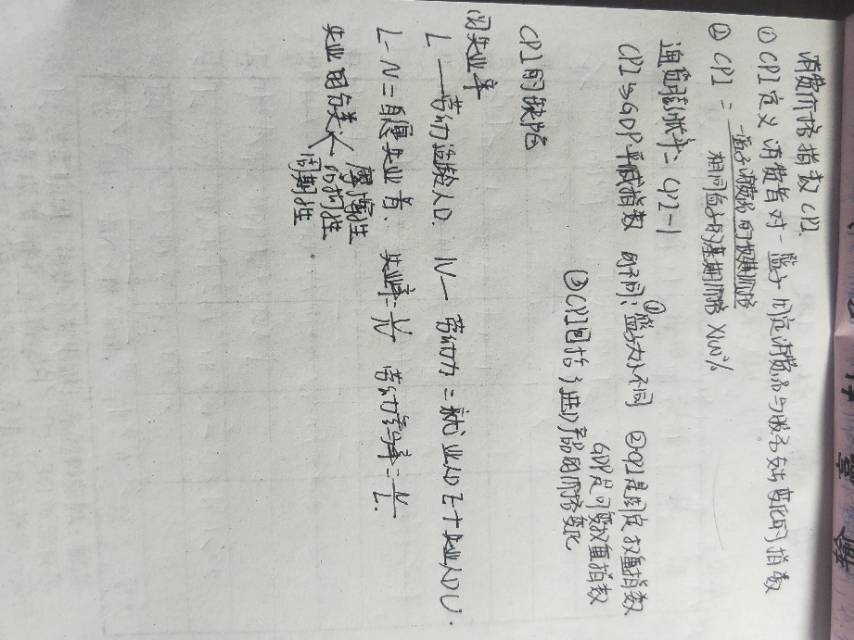 消费价格指数 CPI
① CPI定义 消费者对一篮子固定消费品与服务支出变化的指数
② CPI = 一篮子消费品的现期价格
相同篮子的基期价格 X100%
通货膨胀率 = CPI-1
CPI与GDP平减指数的不同: ①篮子大小不同 ②CPI是固定权重指数
GDP是可变权重指数
③CPI包括了进口产品的价格变化
CPI的缺陷
四失业率
L — 劳动适龄人口. N — 劳动力 = 就业人口E + 失业人口U.
L-N = 自愿失业者. 失业率 = U/N 劳动参与率 = N/L.
失业的分类 摩擦性
结构性
周期性